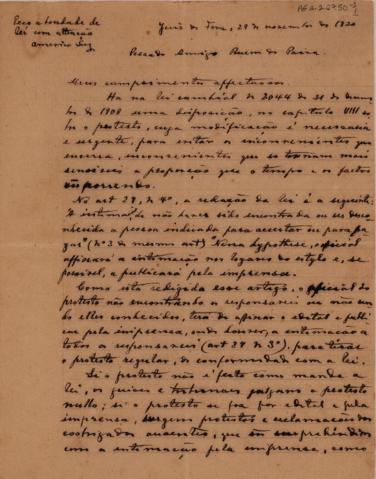 Peço a bondade de
lei com attenção
PEA 2.2.6750
Juiz de Fora, 29 de novembro de 1920
Prezado Amigo Ruem de Paiva.
Meus cumprimentos affectuosos.
Ha na lei cambial de 2044 de 31 de
bro de 1908 uma disposição, no capitulo VIII so
bre o protesto, cuja modificação é necessaria
e urgente, para evitar os inconvenientes que
encerra, inconvenientes que se tornam mais
sensiveis a proporção que o tempo e os factos
vão correndo.
No art 29, nº 4º, a redação da lei é a seguinte:
de não haver sido encontrada ou ser desco-
nhecida a pessoa indicada para acceitar ou para pa-
gar" (nº 3 do mesmo art) Nessa hypothese, o official
affixará a intimação nos logares do estylo e, se
possivel, a publicará pela imprensa.
Como está redigido esse artigo, o official do
protesto não encontrando os responsaveis
elles conhecidos, terá de affixar o edital e publi-
car pela imprensa, onde houver, a intimação a
todos os responsaveis (art 29 nº 3º), para tirar
o protesto regular, de conformidade com a lei.
Si o protesto não é feito como manda a
lei, os juizes e tribunaes julgam o protesto
nullo; si o protesto se faz por edital e pela
imprensa, surgem protestos e reclamações dos
coobrigados ausentes, que são surprehendidos
com a intimação pela imprensa, como